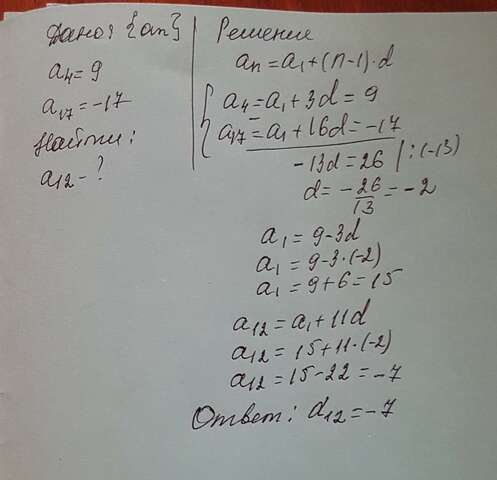 Дано: {an}
a4 = 9
a17 = -17
Найти:
a12 - ?
Решение
an = a1 + (n-1)·d
a4 = a1 + 3d = 9
a17 = a1 + 16d = -17
-13d = 26 | :(-13)
d = -26/13 = -2
a1 = 9 - 3d
a1 = 9 - 3·(-2)
a1 = 9 + 6 = 15
a12 = a1 + 11d
a12 = 15 + 11·(-2)
a12 = 15 - 22 = -7
Ответ: a12 = -7